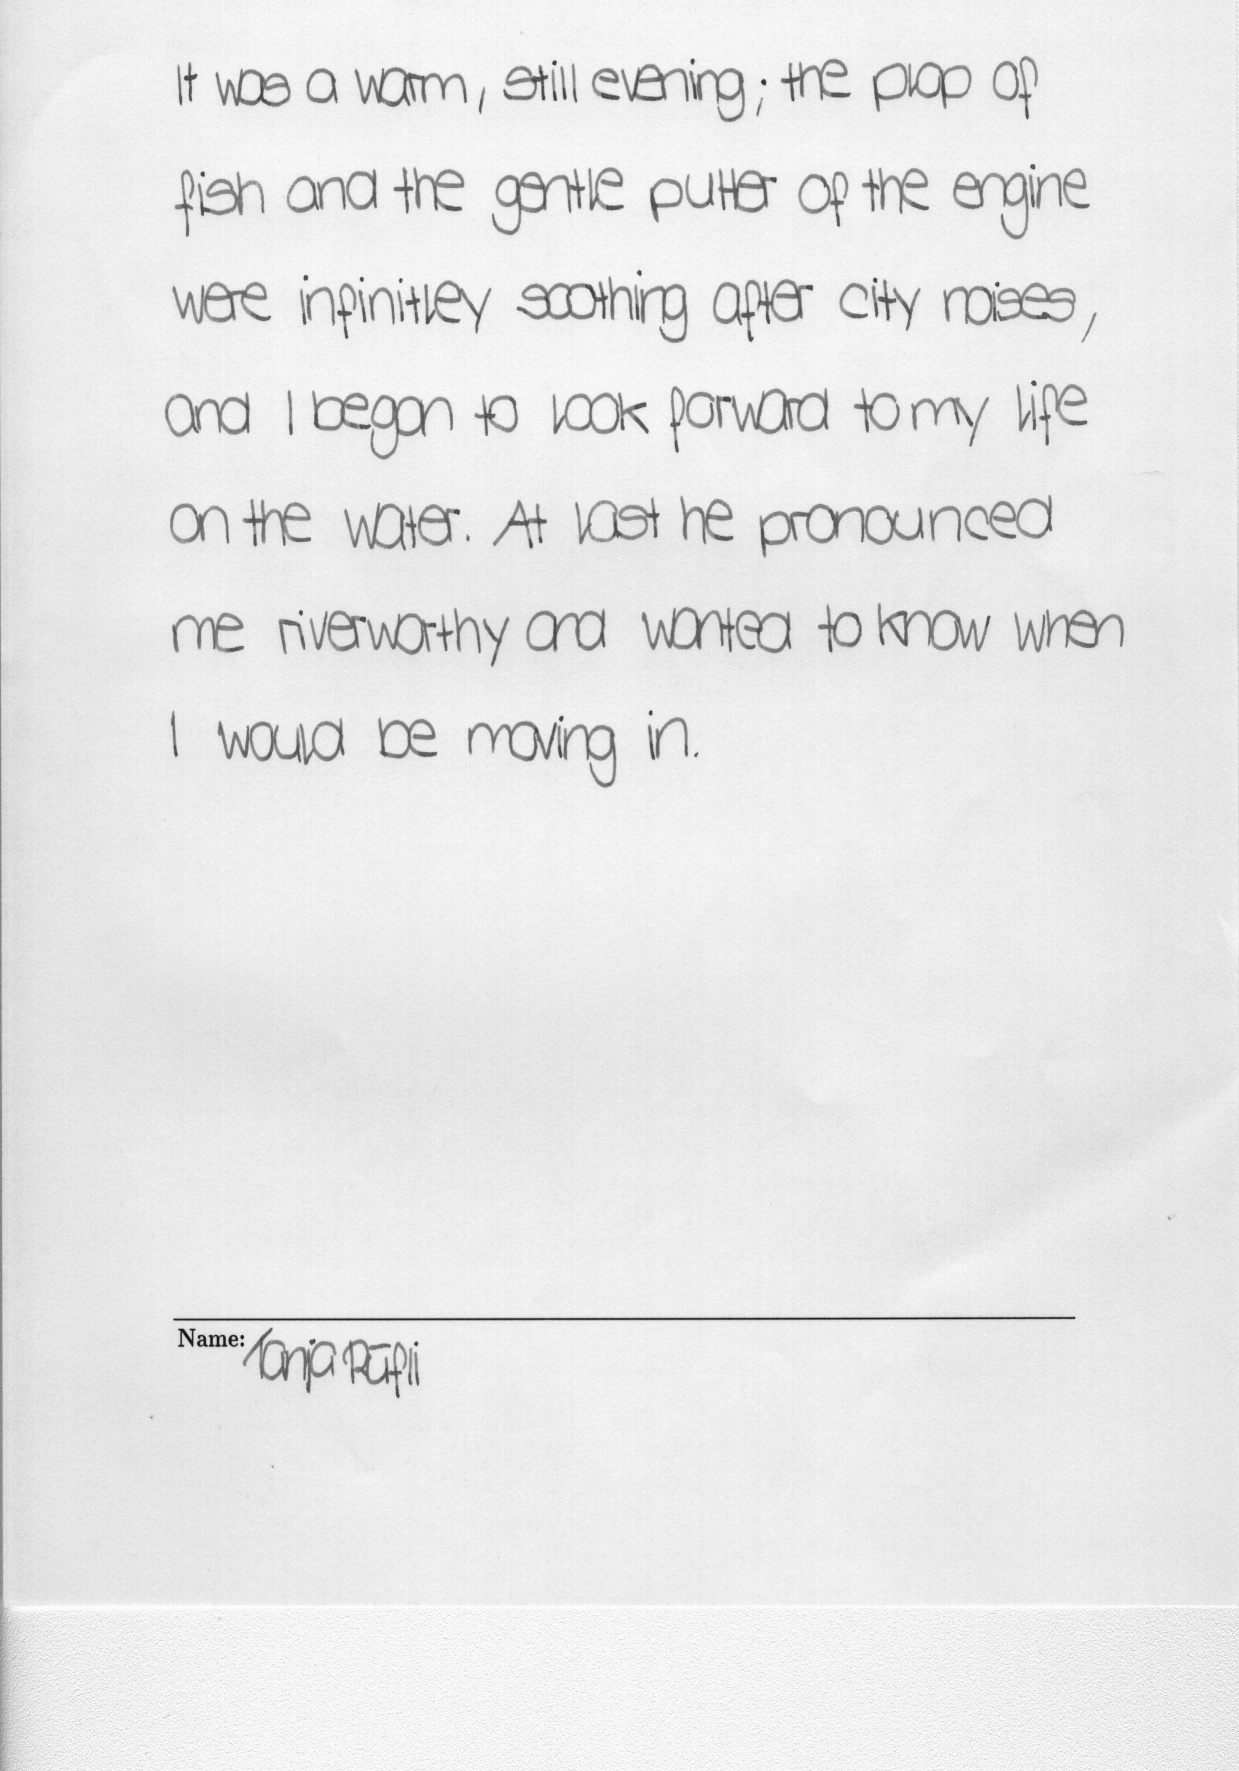 It was a warm, still evening; the plop of
fish and the gentle putter of the engine
were infinitley soothing after city noises,
and I began to look forward to my life
on the water. At last he pronounced
me riverworthy and wanted to know when
I would be moving in.
Name: Tanja Rüfli